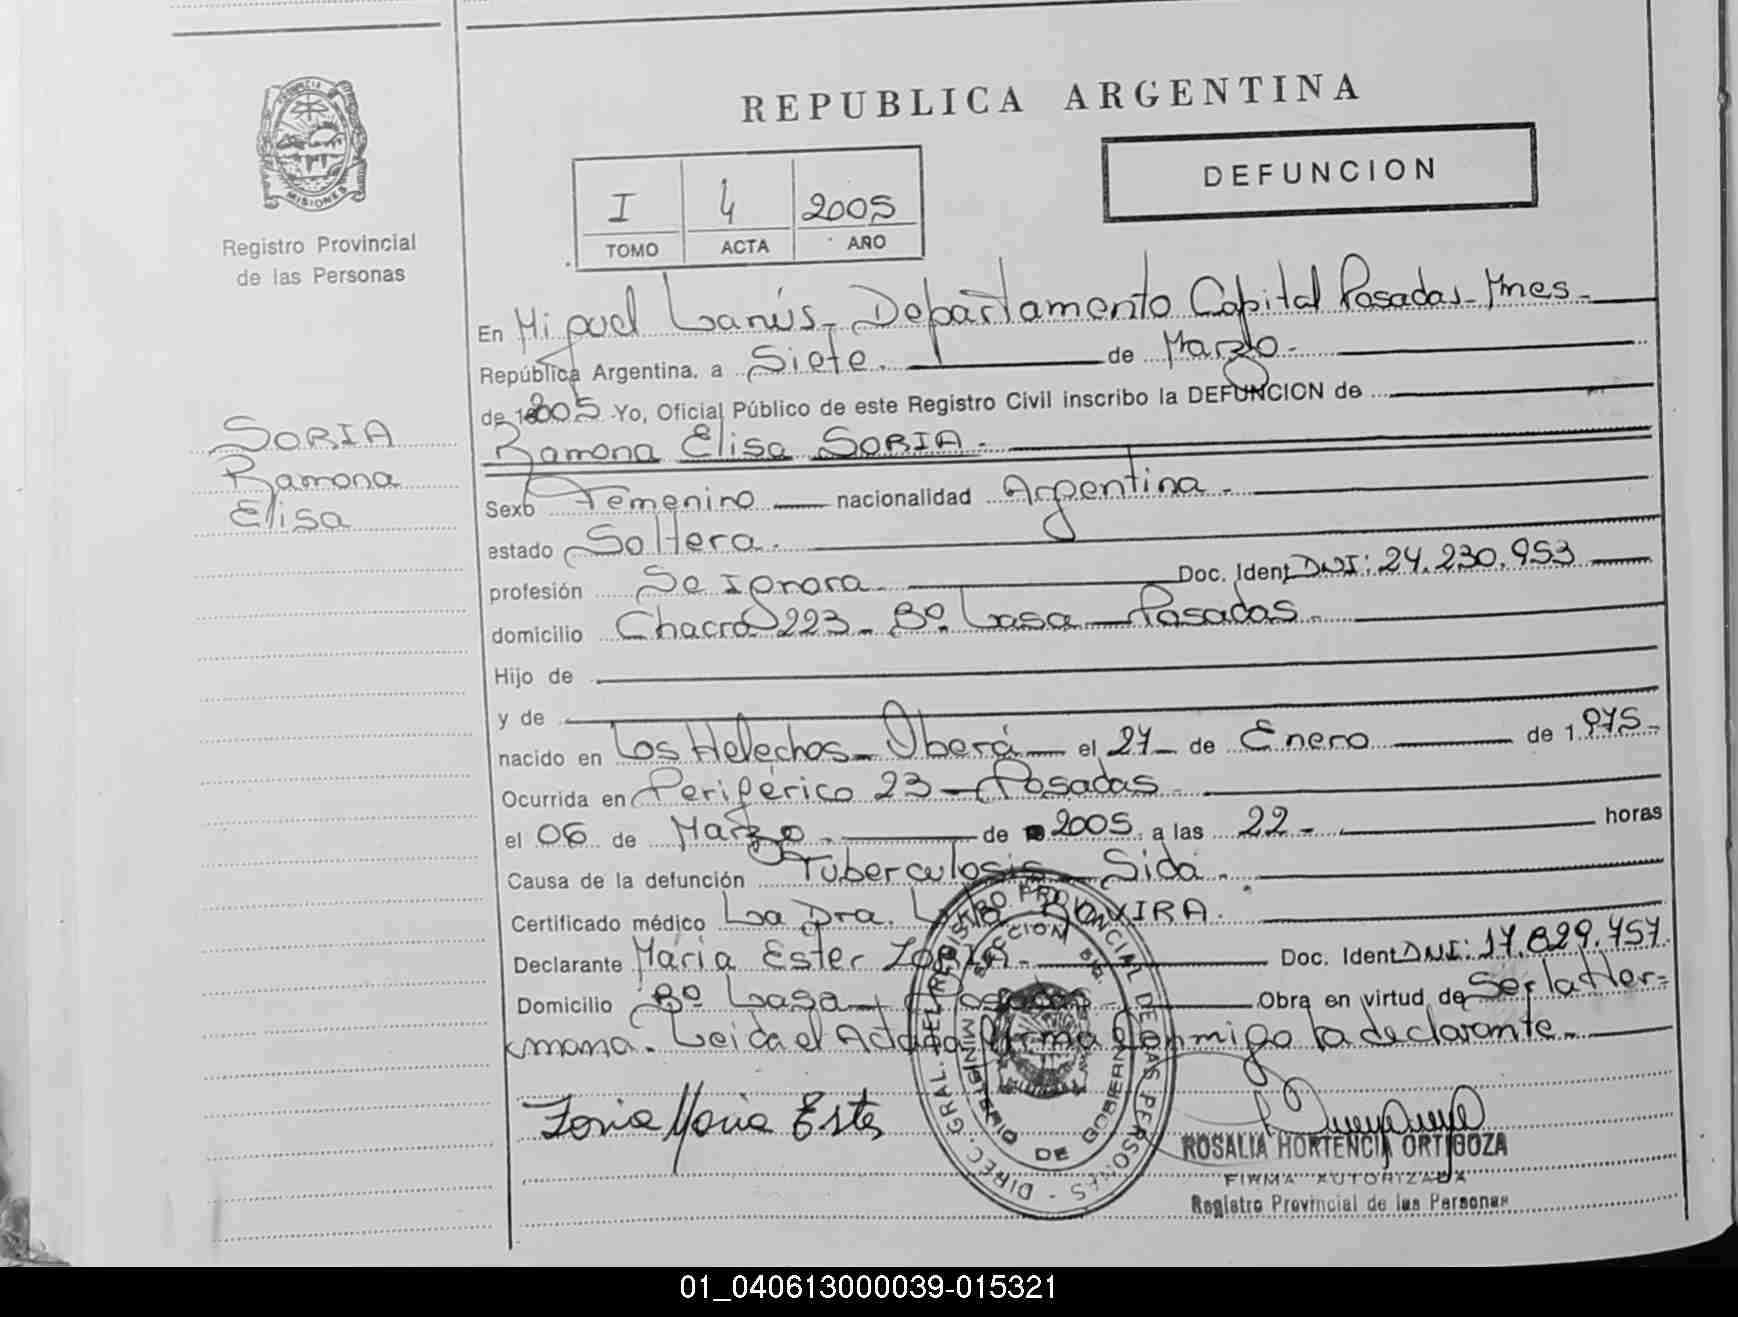 REPUBLICA ARGENTINA
DEFUNCION
PROVINCIA DE MISIONES
Registro Provincial
de las Personas
I 4 2005
TOMO ACTA AÑO
En Miguel Lanús - Departamento Capital Posadas - Mnes -
República Argentina, a Siete. de Marzo -
de 2005 Yo, Oficial Público de este Registro Civil inscribo la DEFUNCION de
SORIA
Ramona
Elisa
Ramona Elisa SORIA -
Sexo Femenino nacionalidad Argentina -
estado Soltera.
profesión Se Ignora Doc. Ident DNI: 24.230.953
domicilio Chacra 223 - Bº. Lasa - Posadas -
Hijo de
y de
nacido en Los Helechos - Oberá - el 27 - de Enero de 1.975 -
Ocurrida en Periférico 23 - Posadas -
el 06 de Marzo - de 2005 a las 22 - horas
Causa de la defunción Tuberculosis - Sida -
Certificado médico La Dra.
Declarante María Ester Doc. Ident DNI: 17.829.757
Domicilio Bº Lasa - Posadas - Obra en virtud de Ser la Her=
mana. Leida el Acta la firma conmigo la declarante -
Maria Ester
DIREC. GRAL. DEL REGISTRO PROVINCIAL DE LAS PERSONAS
MINISTERIO DE GOBIERNO
ROSALIA HORTENCIA ORTIGOZA
FIRMA AUTORIZADA
Registro Provincial de las Personas
01_040613000039-015321